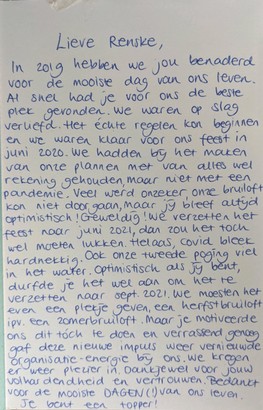 Lieve Renske,
In 2019 hebben we jou benaderd
voor de mooiste dag van ons leven.
Al snel had je voor ons de beste
plek gevonden. We waren op slag
verliefd. Het échte regelen kon beginnen
en we waren klaar voor ons feest in
juni 2020. We hadden bij het maken
van onze plannen met van alles wel
rekening gehouden, maar niet met een
pandemie. Veel werd onzeker, onze bruiloft
kon niet door gaan, Maar jij bleef altijd
optimistisch! Geweldig! We verzetten het
feest naar juni 2021, dan zou het toch
wel moeten lukken. Helaas, covid bleek
hardnekkig. Ook onze tweede poging viel
in het water. Optimistisch als jij bent,
durfde je het wel aan om het te
verzetten naar sept. 2021. We moesten het
even een plekje geven, een herfstbruiloft
ipv. een zomerbruiloft. Maar je motiveerde
ons dit tóch te doen en verrassend genoeg
gaf deze nieuwe impuls weer vernieuwde
organisatie-energie bij ons. We kregen
er weer plezier in. Dankjewel voor jouw
volhardendheid en vertrouwen. Bedankt
voor de mooiste DAGEN(!) van ons leven.
Je bent een topper!